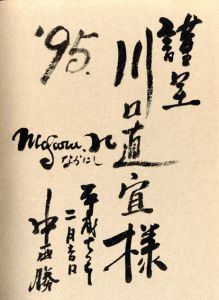 謹呈
川口直宜様
'95.
Masaru. N
なかにし
平成七年
二月吉日
中西勝